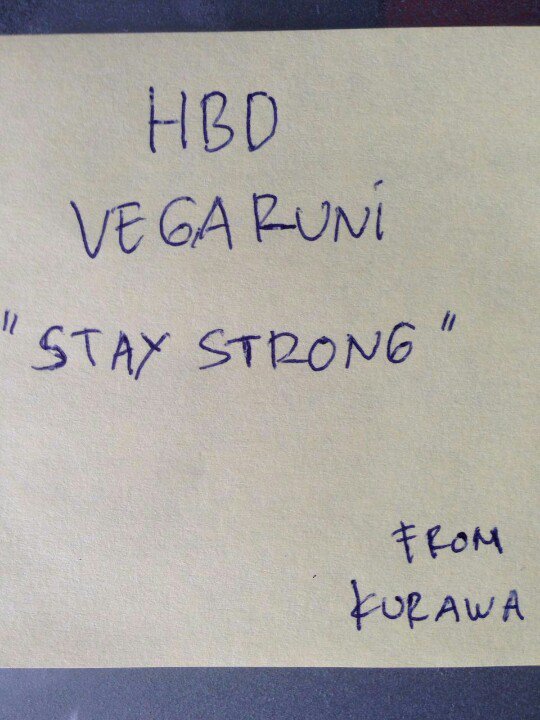 HBD
VEGA RUNi
"STAY STRONG"
FROM
KURAWA